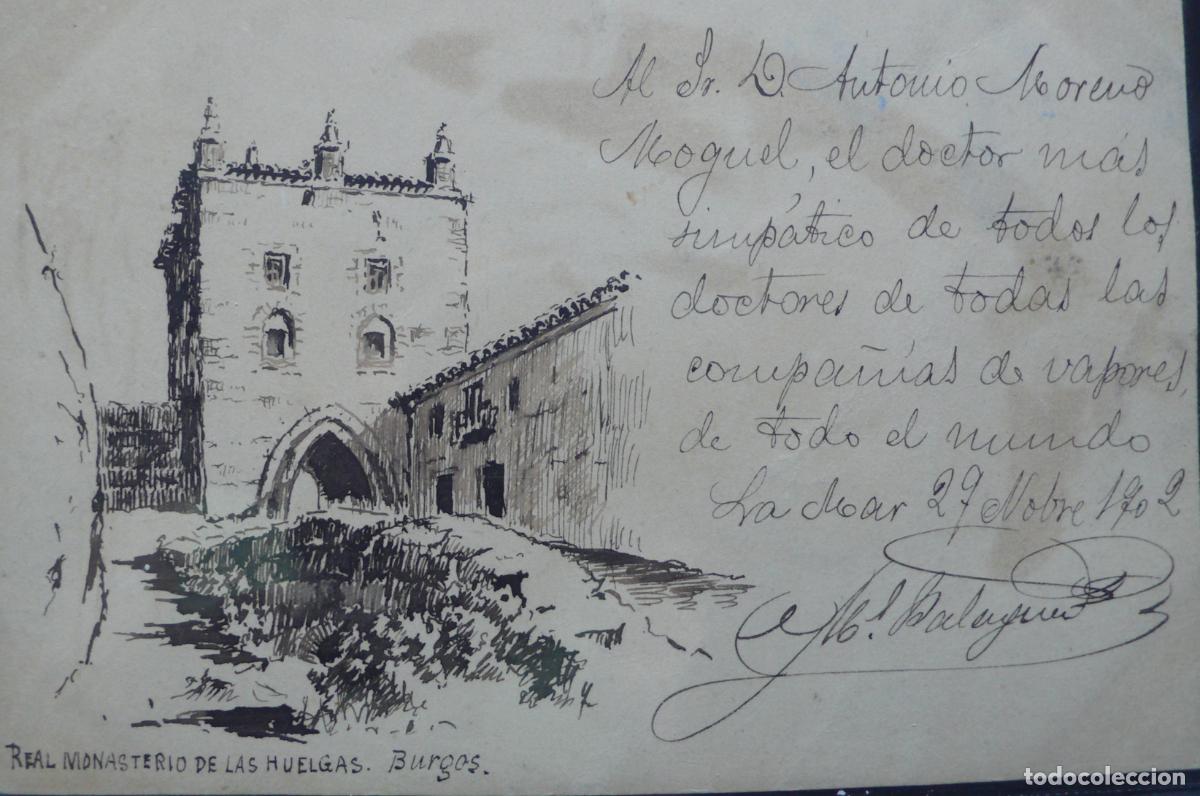 Al Sr. D. Antonio Moreno
Moguel, el doctor más
simpático de todos los
doctores de todas las
compañías de vapores,
de todo el mundo
La Mar 27 Nobre 1902
Ml. Balaguer
REAL MONASTERIO DE LAS HUELGAS. Burgos.
todocoleccion